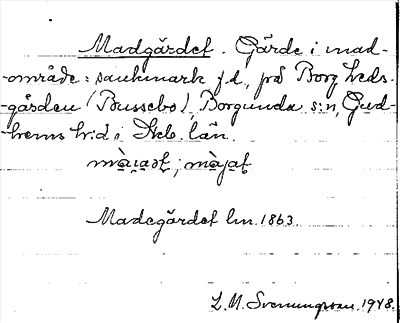 Madgärdet. Gärde i mad-
-område: sankmark f.d., på Borg Leds-
-gården (Bussebo), Borgunda s:n, Gud-
-hems h:d i Skb. län.
Madegärdet lm. 1863.
L. M. Svenungsson 1948.